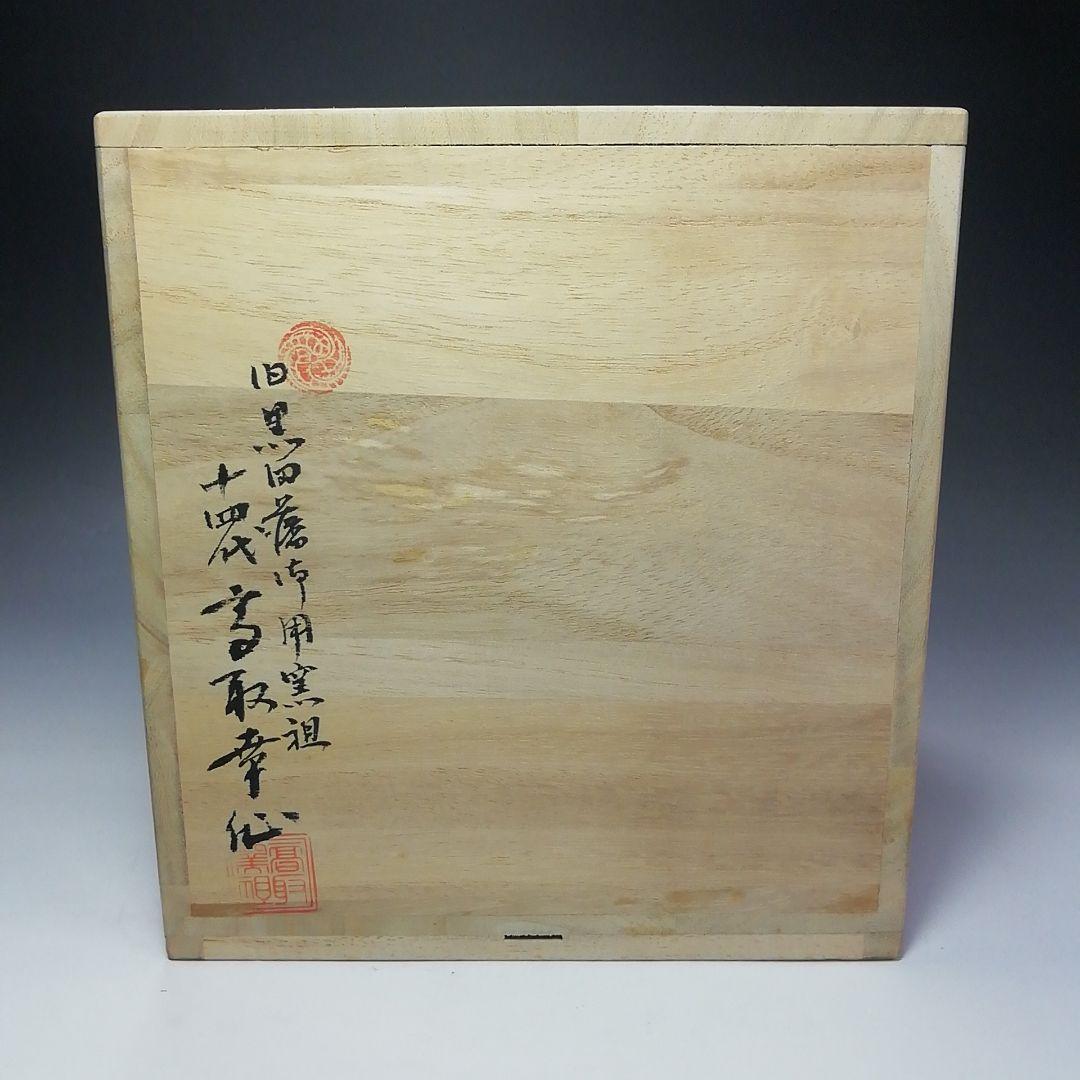 旧黒田藩御用窯祖
十四代高取幸仙